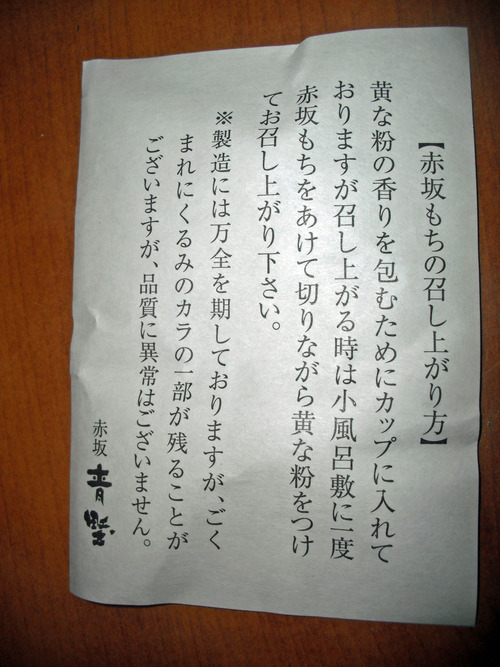 【赤坂もちの召し上がり方】
黄な粉の香りを包むためにカップに入れて
おりますが召し上がる時は小風呂敷に一度
赤坂もちをあけて切りながら黄な粉をつけ
てお召し上がり下さい。
※製造には万全を期しておりますが、ごく
まれにくるみのカラの一部が残ることが
ございますが、品質に異常はございません。
赤坂 青野